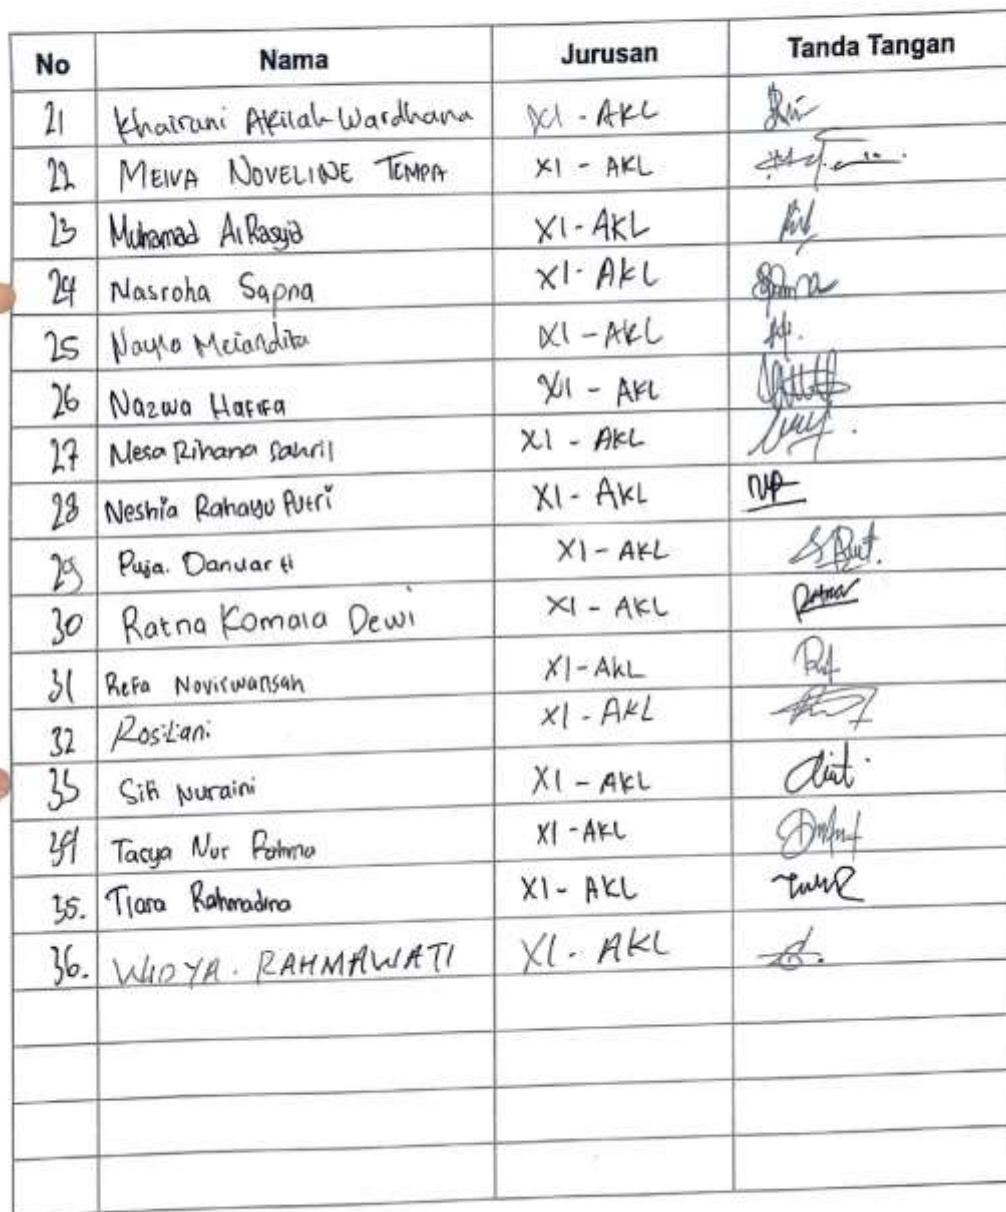 No Nama Jurusan Tanda Tangan
21 Khairani Akilah Wardhana XI - AKL
22 MEIVA NOVELINE TEMPA XI - AKL
23 Muhamad Al Rasyid XI - AKL
24 Nasroha Sapna XI - AKL
25 Nayla Meiandita XI - AKL
26 Nazwa Hafifa XI - AKL
27 Nesa Rihana Sahril XI - AKL
28 Neshia Rahayu Putri XI - AKL NP
29 Puja. Danuarti XI - AKL
30 Ratna Komala Dewi XI - AKL Ratna
31 Refa Novirwansah XI - AKL
32 Rosliani XI - AKL
33 Siti Nuraini XI - AKL
34 Tacya Nur Rahma XI - AKL
35. Tiara Rahmadina XI - AKL
36. WIDYA. RAHMAWATI XI - AKL